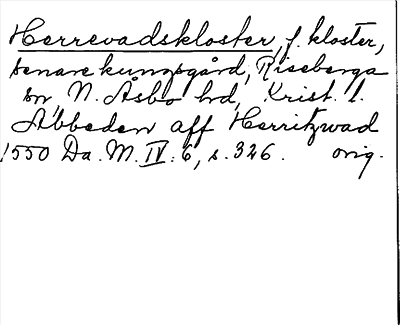 Herrevadskloster, f. kloster,
senare kungsgård, Riseberga
sn, N. Åsbo hd, Krist. l.
Abbeden aff Herritzwad
1550 Da. M. IV: 6, s. 326. orig.